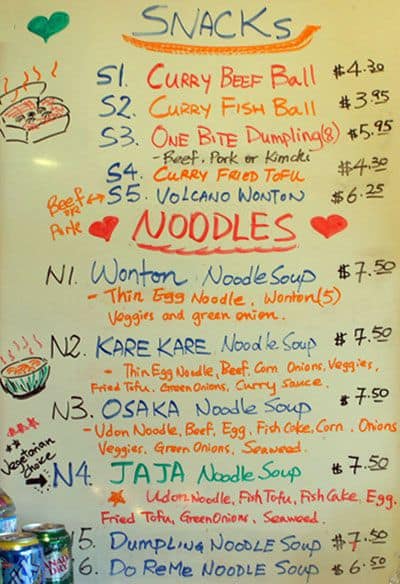 SNACKS
S1. CURRY BEEF BALL $4.30
S2. CURRY FISH BALL $3.95
S3. ONE BITE DUMPLING(8) $5.95
- Beef, Pork or Kimchi
S4. CURRY FRIED TOFU $4.30
Beef or Pork
S5. VOLCANO WONTON $6.25
NOODLES
N1. Wonton Noodle Soup $7.50
- Thin Egg Noodle, Wonton(5)
Veggies and green onion.
N2. KARE KARE Noodle Soup $7.50
- Thin Egg Noodle, Beef, Corn Onions, Veggies,
Fried Tofu, Green Onions, Curry Sauce.
N3. OSAKA Noodle Soup $7.50
- Udon Noodle, Beef, Egg, Fish Cake, Corn, Onions
Veggies, Green Onions, Seaweed.
Vegetarian Choice
N4. JAJA Noodle Soup $7.50
Udon Noodle, Fish Tofu, Fish Cake, Egg.
Fried Tofu, Green Onions, Seaweed.
5. DUMPLING NOODLE SOUP $7.50
6. DO REME NOODLE SOUP $6.50